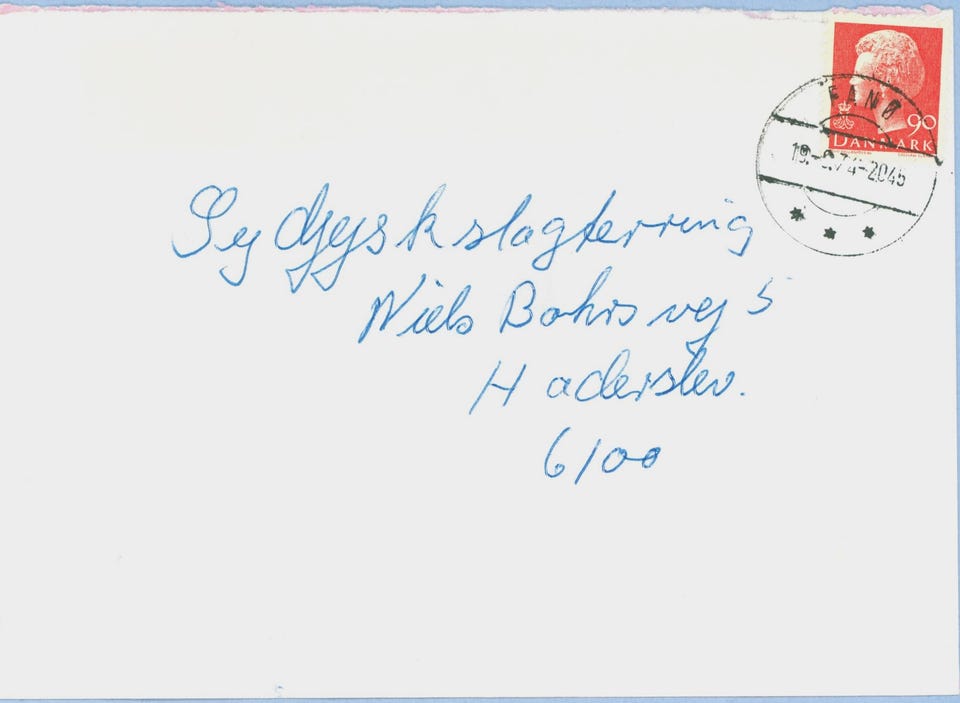 FANØ
90
DANMARK
19.-9.74-2045
Sydjysk slagterring
Niels Bohrs vej 5
Haderslev.
6100